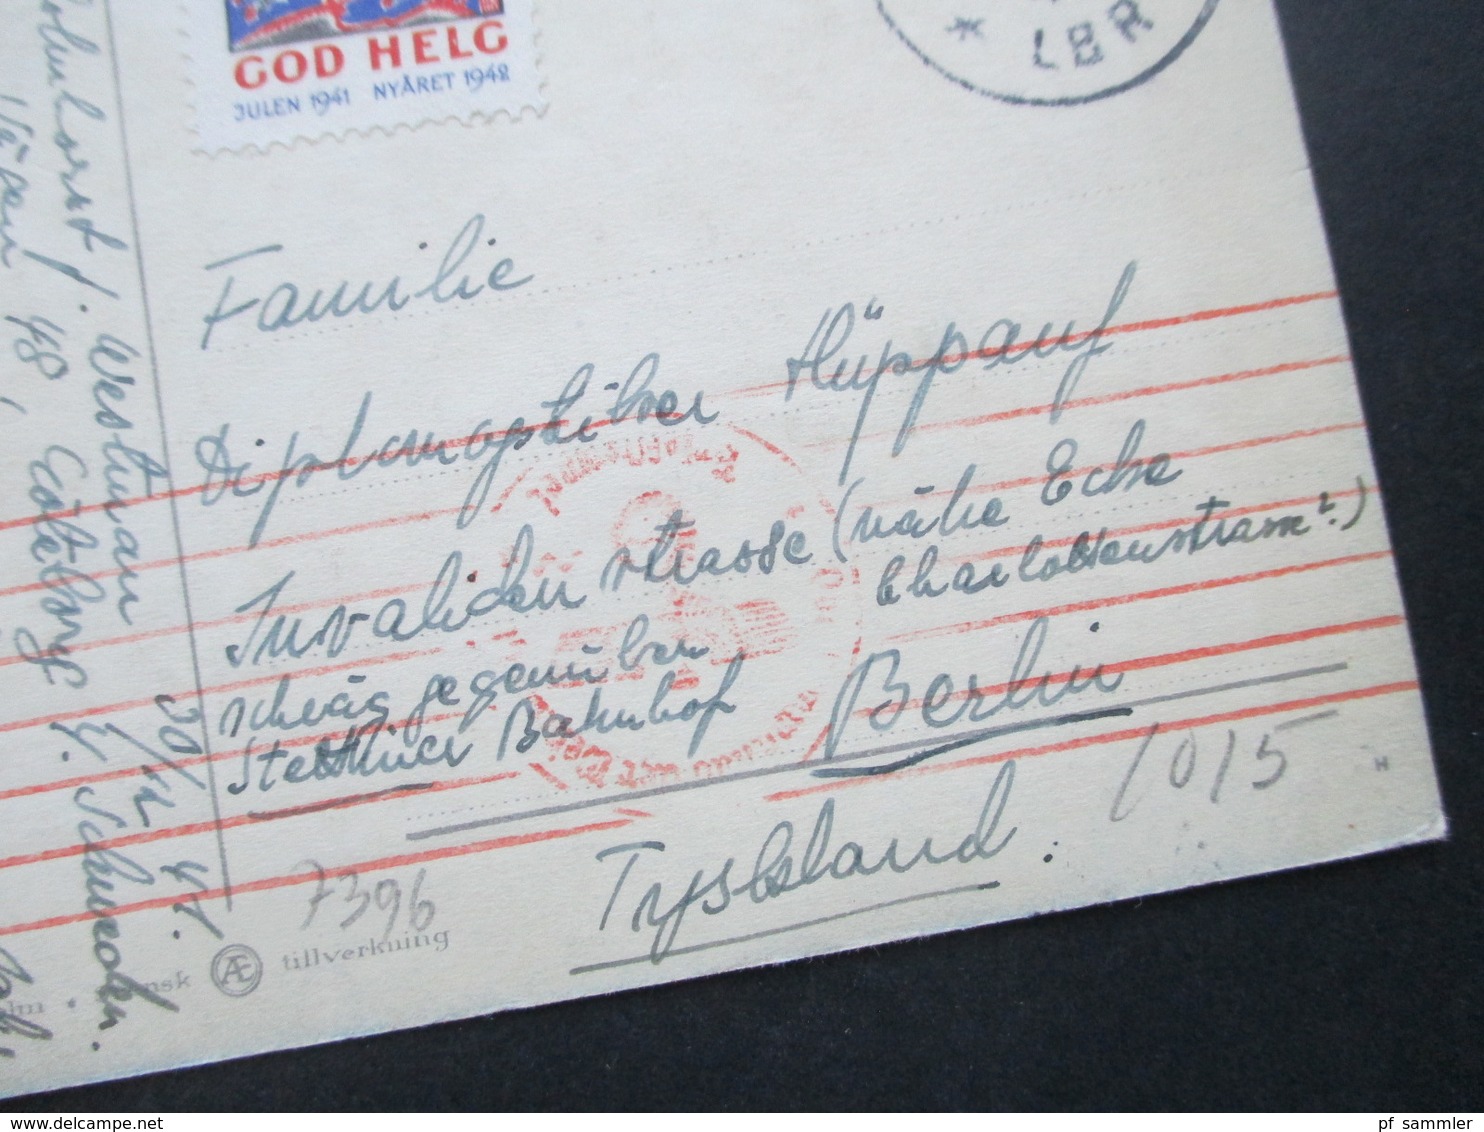 GOD HELG
JULEN 1941 NYÅRET 1942
* LBR
Familie
Diplomoptiker Hüppauf
Invalidenstrasse (nähe Ecke
Charlottenstrasse?)
schräg gegenüber
Stettiner Bahnhof
Berlin
Tyskland.
1015
7396
tillverkning
Æ
N
Westman
Vägen 48, Göteborg
30/12 41.
Schweden.
pf sammler